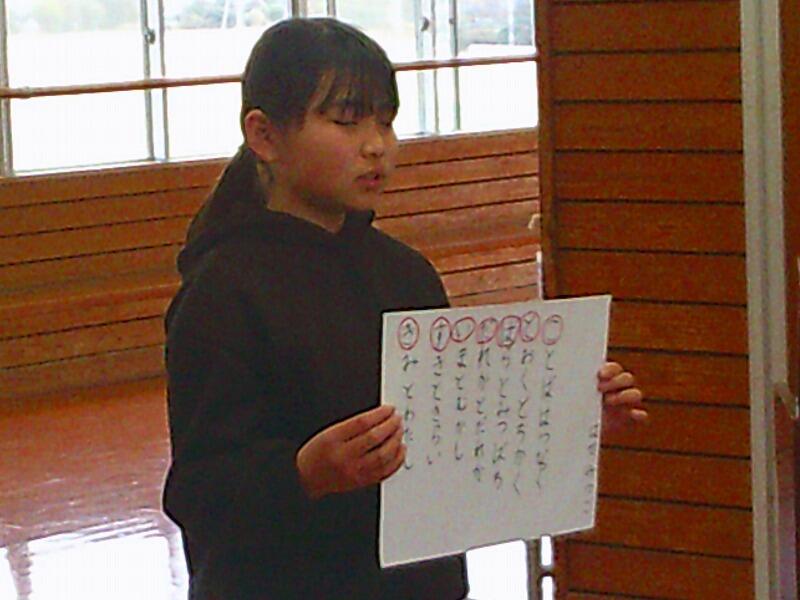 ことばはつなぐ
とおくとちかく
ばらとみつばち
だれかとだれか
いまとむかし
すきときらい
きみとわたし